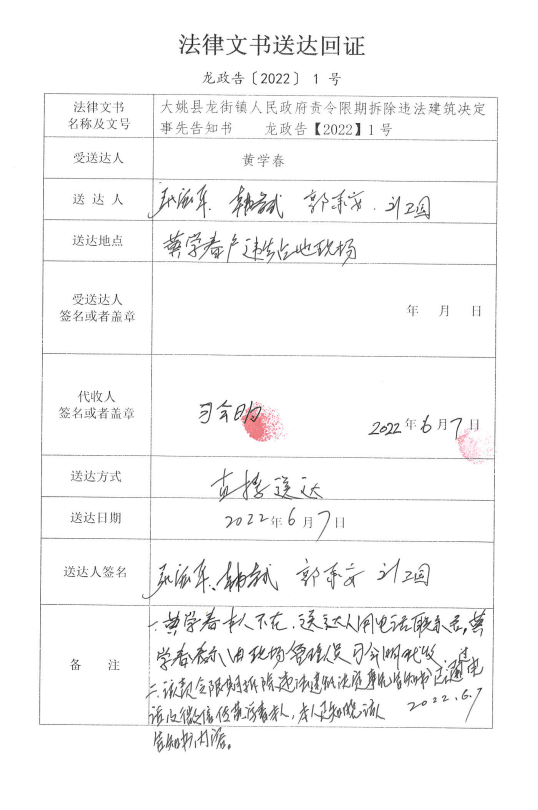 法律文书送达回证
龙政告〔2022〕 1 号
法律文书
名称及文号
大姚县龙街镇人民政府责令限期拆除违法建筑决定
事先告知书 龙政告【2022】1号
受送达人
黄学春
送 达 人
郭 刘卫国
送达地点
黄学春户违法占地现场
受送达人
签名或者盖章
年 月 日
代收人
签名或者盖章
2022年6月7日
送达方式
直接送达
送达日期
2022年6月7日
送达人签名
郭 刘卫国
备 注
一、黄学春本人不在,送达人用电话联系后,黄
学春表示由现场管理员 代收
二、该责令限期拆除违法建筑决定事先告知书已通过电
话及微信 本人,本人已知晓该
告知书内容。
2022.6.7